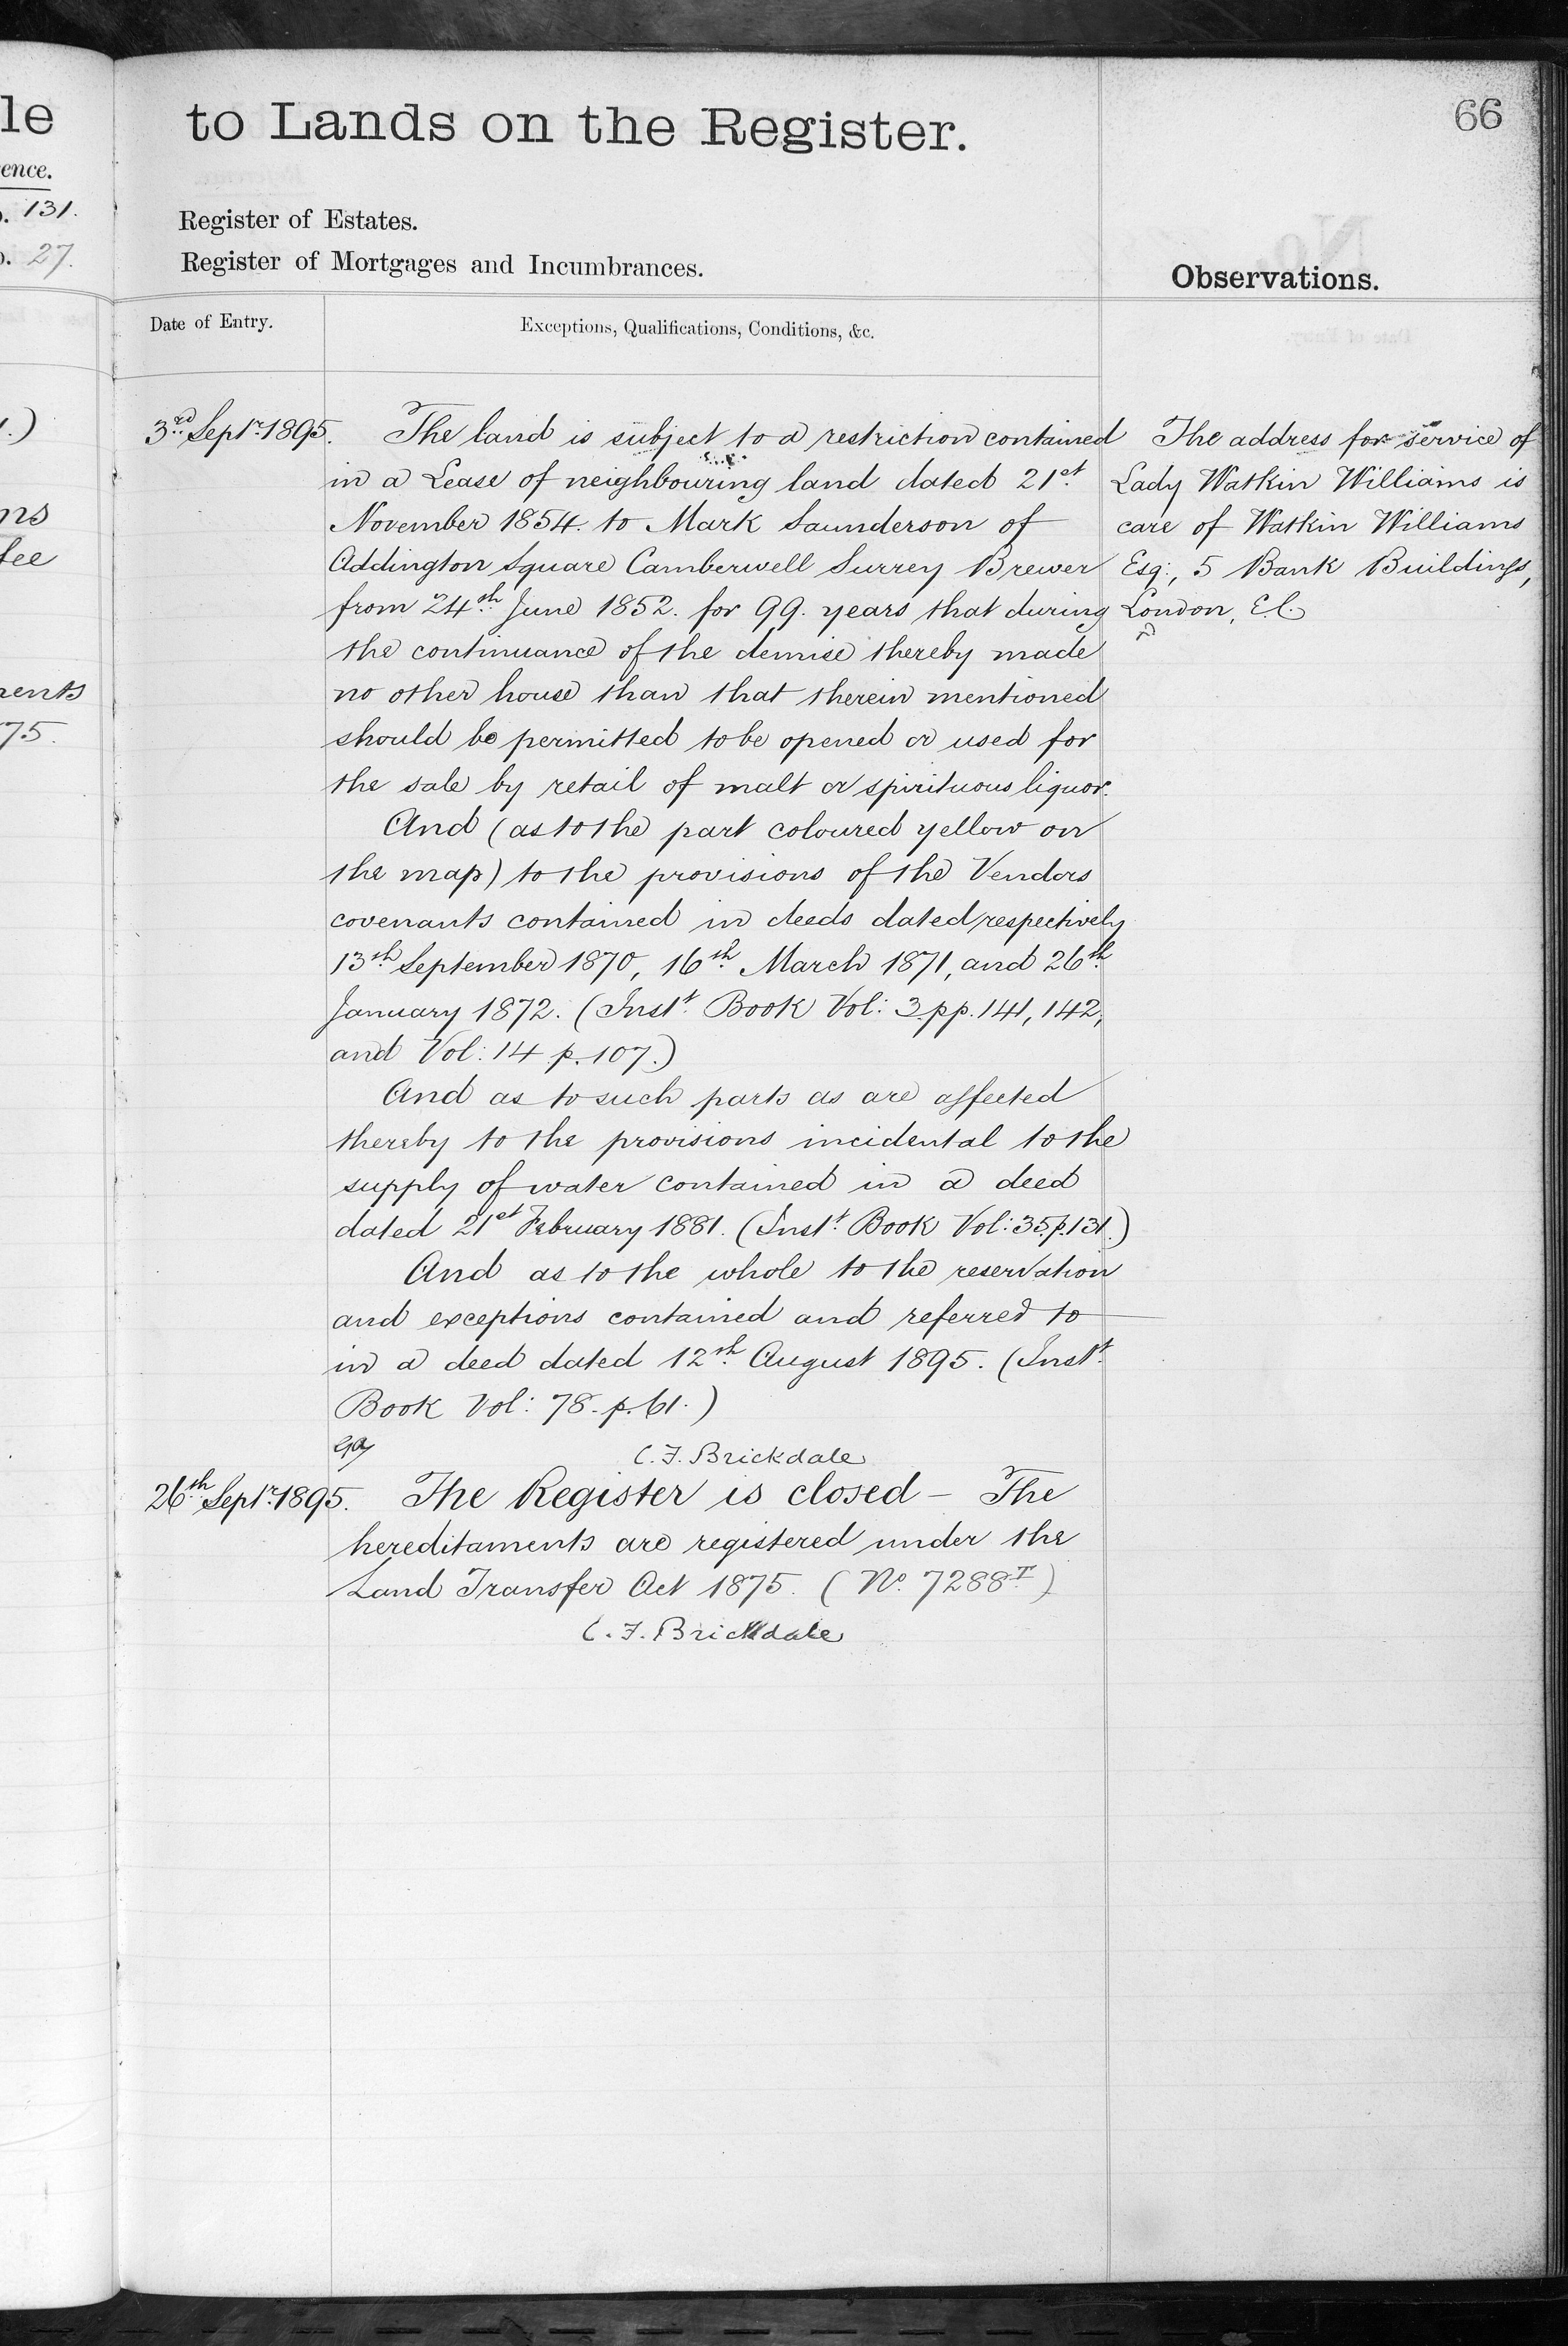 le
ence.
131.
27.
.)
ns
ee
ents
75.
to Lands on the Register.
66
Register of Estates.
Register of Mortgages and Incumbrances.
Observations.
Date of Entry.
Exceptions, Qualifications, Conditions, &c.
3rd Septr. 1895.
The land is subject to a restriction contained
in a Lease of neighbouring land dated 21st
November 1854. to Mark Saunderson of
Addington Square Camberwell Surrey Brewer
from 24th June 1852. for 99. years that during
the continuance of the demise thereby made
no other house than that therein mentioned
should be permitted to be opened or used for
the sale by retail of malt or spirituous liquor.
And (as to the part coloured yellow on
the map) to the provisions of the Vendors
covenants contained in deeds dated respectively
13th September 1870, 16th March 1871, and 26th
January 1872. (Instt. Book Vol: 3. pp. 141, 142,
and Vol: 14 p. 107.)
And as to such parts as are affected
thereby to the provisions incidental to the
supply of water contained in a deed
dated 21st February 1881. (Instt. Book Vol: 35. p. 131.)
And as to the whole to the reservation
and exceptions contained and referred to
in a deed dated 12th August 1895. (Instt.
Book Vol: 78. p. 61.)
C. F. Brickdale
26th Septr. 1895.
The Register is closed – The
hereditaments are registered under the
Land Transfer Act 1875. (No. 7288 I)
C. F. Brickdale
The address for service of
Lady Watkin Williams is
care of Watkin Williams
Esq:, 5 Bank Buildings,
London, E.C.